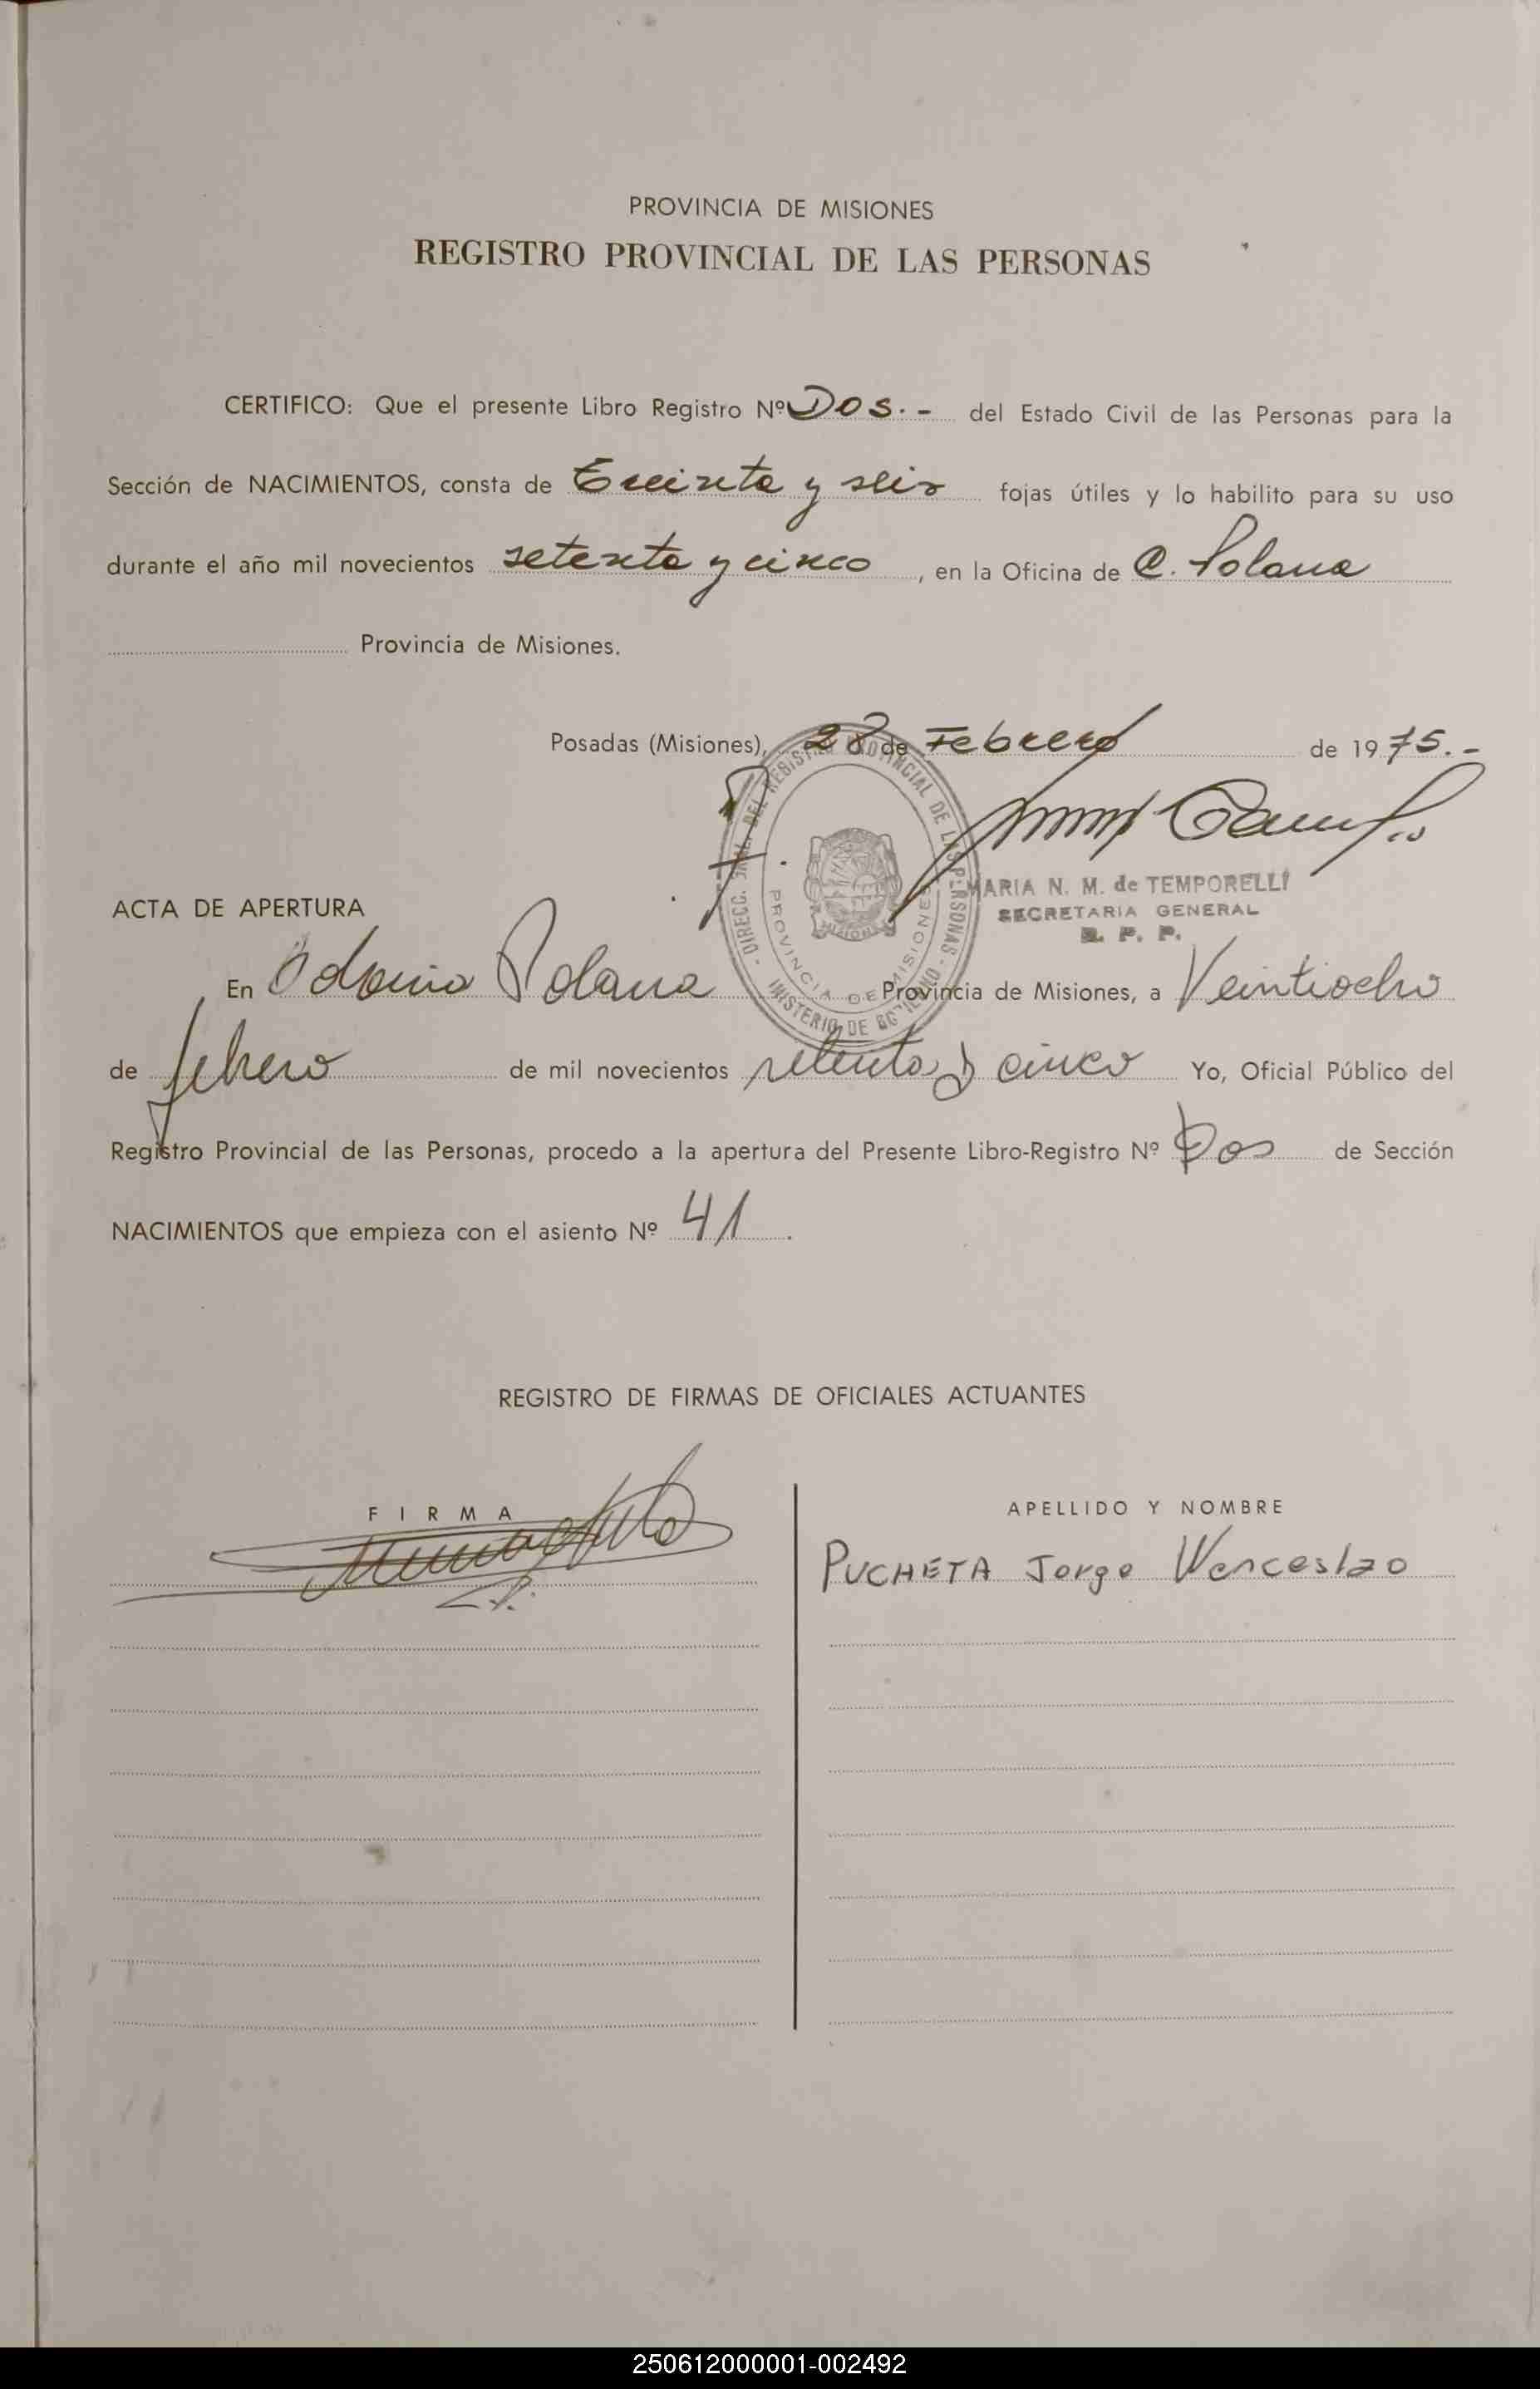 PROVINCIA DE MISIONES
REGISTRO PROVINCIAL DE LAS PERSONAS
CERTIFICO: Que el presente Libro Registro Nº Dos.- del Estado Civil de las Personas para la
Sección de NACIMIENTOS, consta de Treinta y seis fojas útiles y lo habilito para su uso
durante el año mil novecientos setenta y cinco, en la Oficina de C. Polana
Provincia de Misiones.
Posadas (Misiones), 28 de Febrero de 1975.-
MARIA N. M. de TEMPORELLI
SECRETARIA GENERAL
R. P. P.
DIRECC. GRAL. DEL REGISTRO PROVINCIAL DE LAS PERSONAS - MINISTERIO DE GOBIERNO -
PROVINCIA DE MISIONES
MISIONES
ACTA DE APERTURA
En Colonia Polana Provincia de Misiones, a Veintiocho
de febrero de mil novecientos setenta y cinco Yo, Oficial Público del
Registro Provincial de las Personas, procedo a la apertura del Presente Libro-Registro Nº Dos de Sección
NACIMIENTOS que empieza con el asiento Nº 41.
REGISTRO DE FIRMAS DE OFICIALES ACTUANTES
FIRMA
APELLIDO Y NOMBRE
PUCHETA Jorge Wenceslao
250612000001-002492